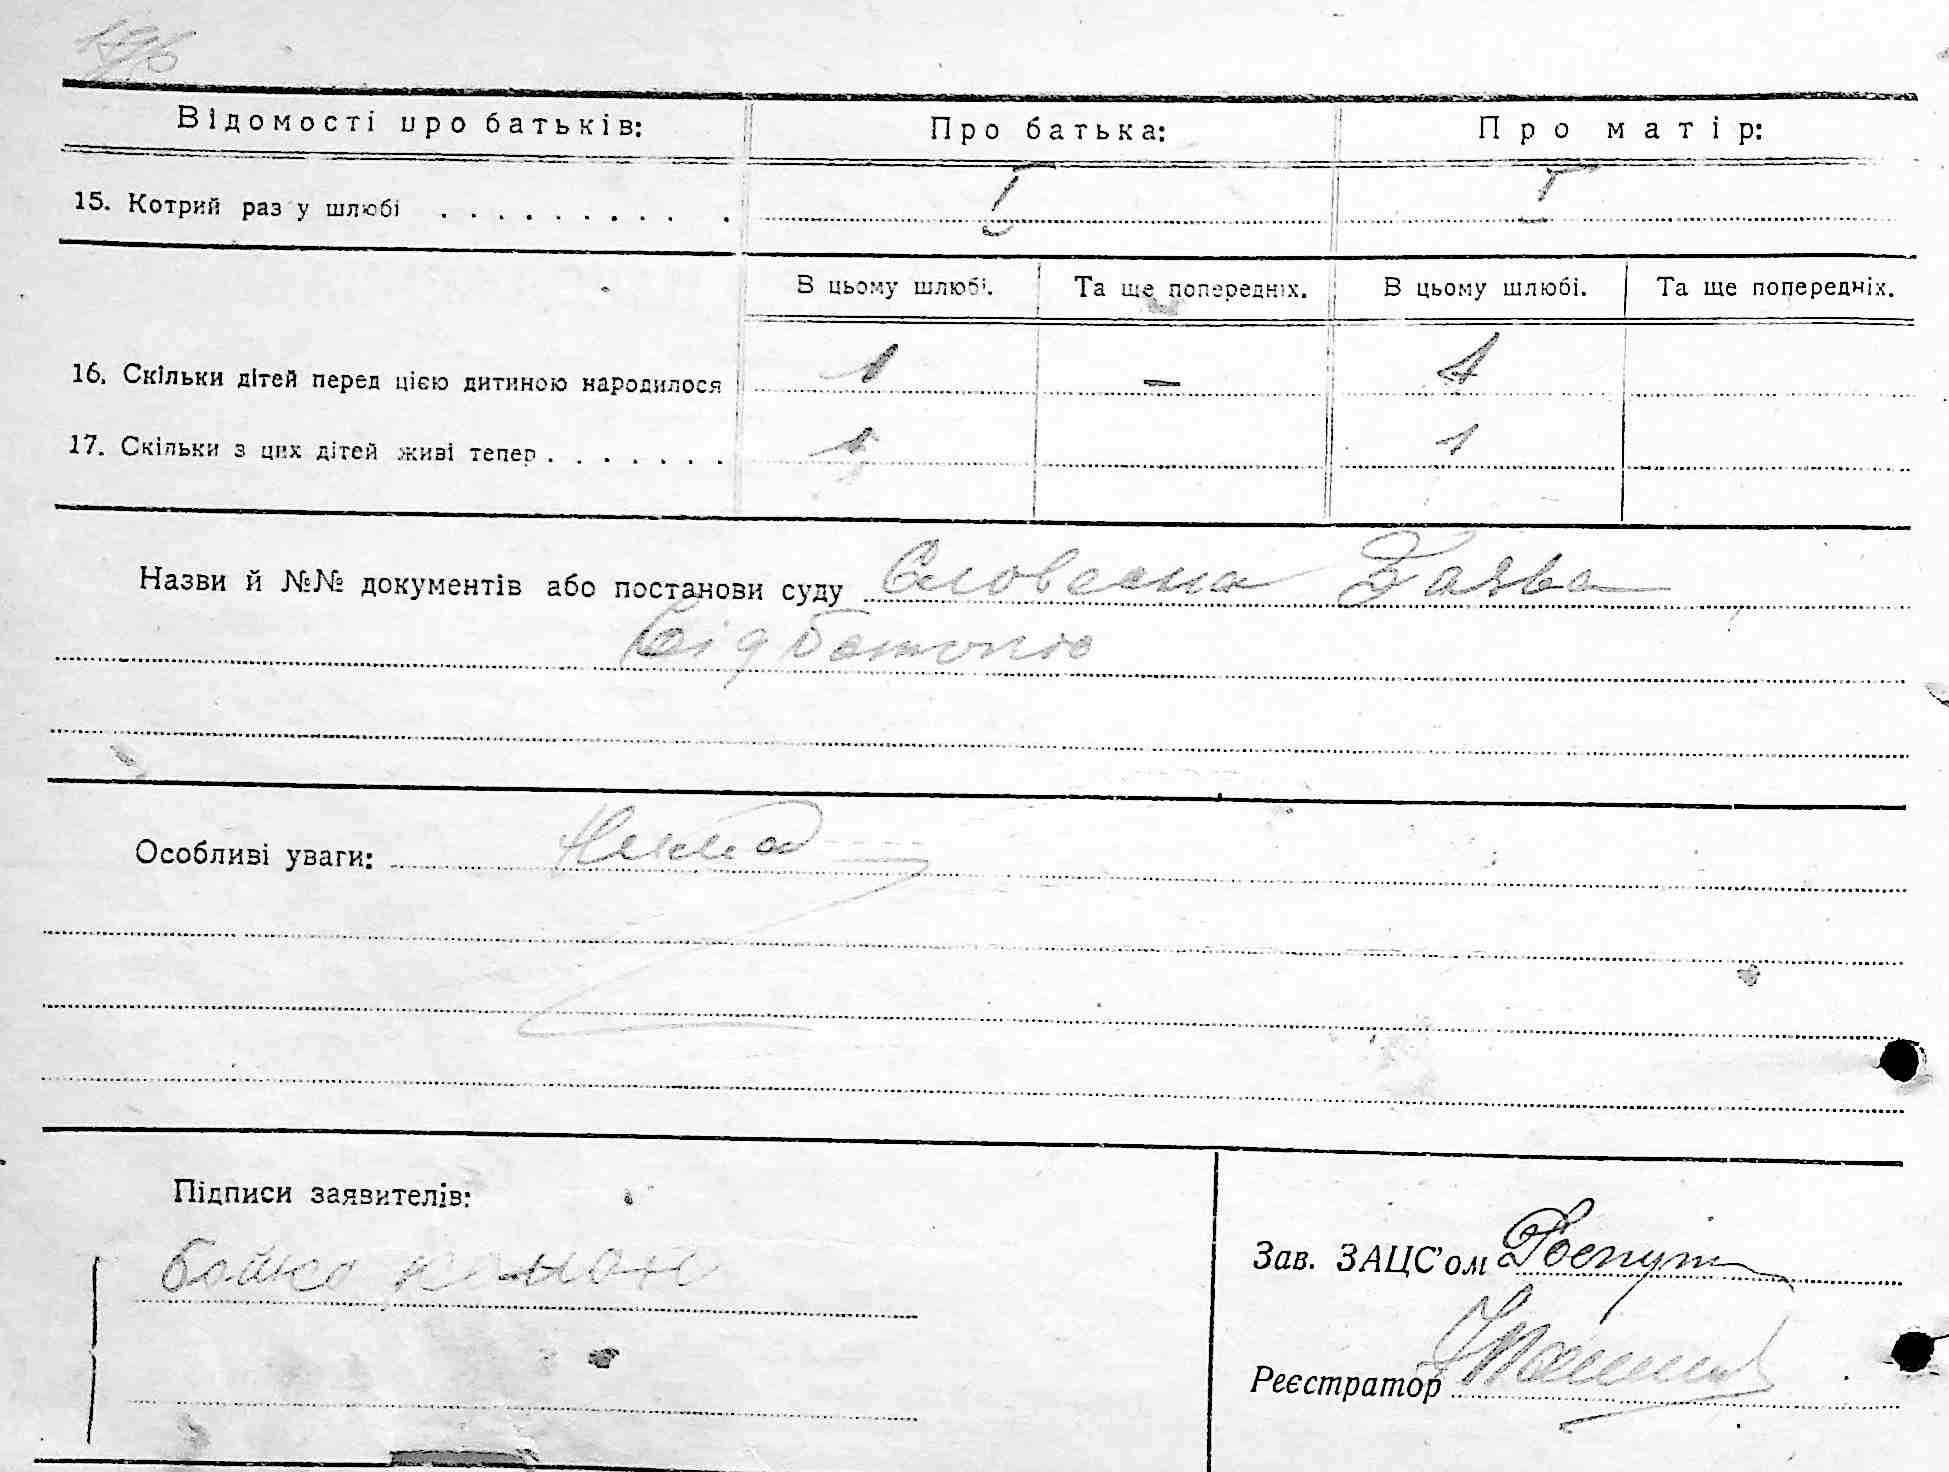 Відомості про батьків: Про батька: Про матір:
15. Котрий раз у шлюбі . . . . . . . . . . I I
В цьому шлюбі. Та ще попередніх. В цьому шлюбі. Та ще попередніх.
16. Скільки дітей перед цією дитиною народилося 1 — 1
17. Скільки з цих дітей живі тепер . . . . . . . 1 1
Назви й №№ документів або постанови суду Словесна Заява
від батьків
Особливі уваги:
Підписи заявителів:
Бойко
Зав. ЗАЦС'ом
Реєстратор